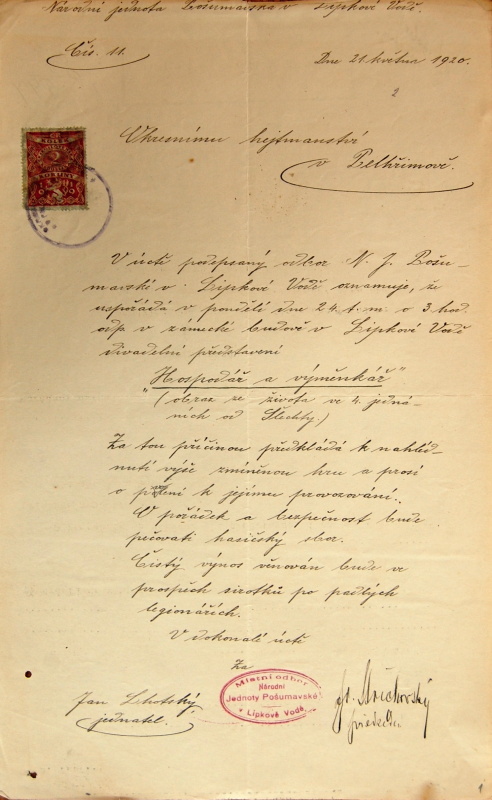 Národní jednota Pošumavská v Lipkové Vodě.
Čís. 11.
Dne 21 května 1920.
2
Okresnímu hejtmanství
v Pelhřimově.
V úctě podepsaný odbor N. J. Pošu-
mavské v Lipkové Vodě oznamuje, že
uspořádá v pondělí dne 24. t. m. o 3 hod.
odp. v zámecké budově v Lipkové Vodě
divadelní představení
"Hospodář a výměnkář"
(obraz ze života ve 4. jedná-
ních od Šlechty.)
Za tou příčinou předkládá k nahléd-
nutí výše zmíněnou hru a prosí
o k jejímu provozování.
O pořádek a bezpečnost bude
pečovati hasičský sbor.
Čistý výnos věnován bude ve
prospěch sirotků po padlých
legionářích.
V dokonalé úctě
Za
Místní odbor
Národní
Jednoty Pošumavské
v Lipkové Vodě.
Jan Lhotský
jednatel.